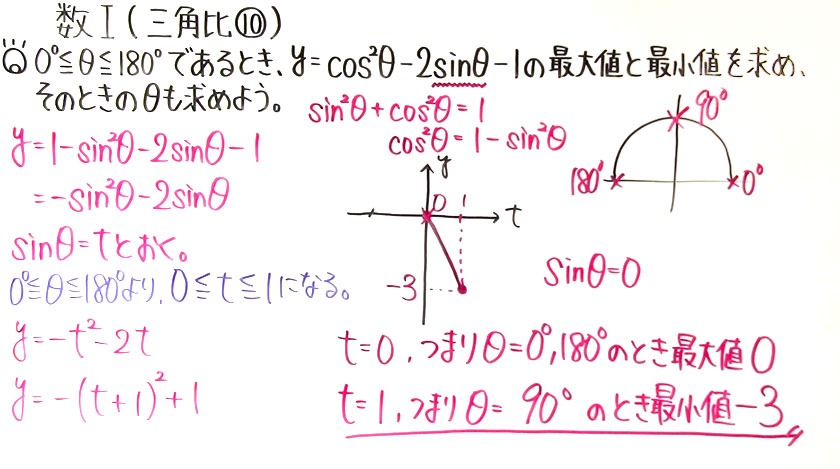 数Ⅰ(三角比⑩)
0°≦θ≦180°であるとき、y=cos²θ-2sinθ-1の最大値と最小値を求め、
そのときのθも求めよう。
sin²θ+cos²θ=1
cos²θ=1-sin²θ
y=1-sin²θ-2sinθ-1
=-sin²θ-2sinθ
sinθ=tとおく。
0°≦θ≦180°より、0≦t≦1になる。
y=-t²-2t
y=-(t+1)²+1
y
0 1
t
-3
90°
180°
0°
sinθ=0
t=0、つまりθ=0°,180°のとき最大値0
t=1、つまりθ=90°のとき最小値-3